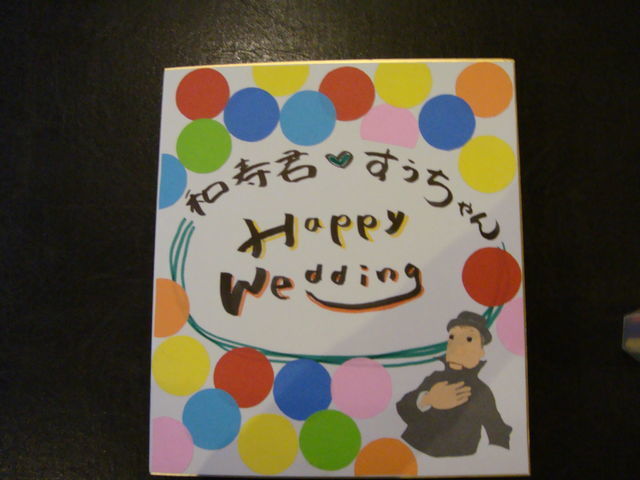 和寿君♥すぅちゃん
Happy
Wedding